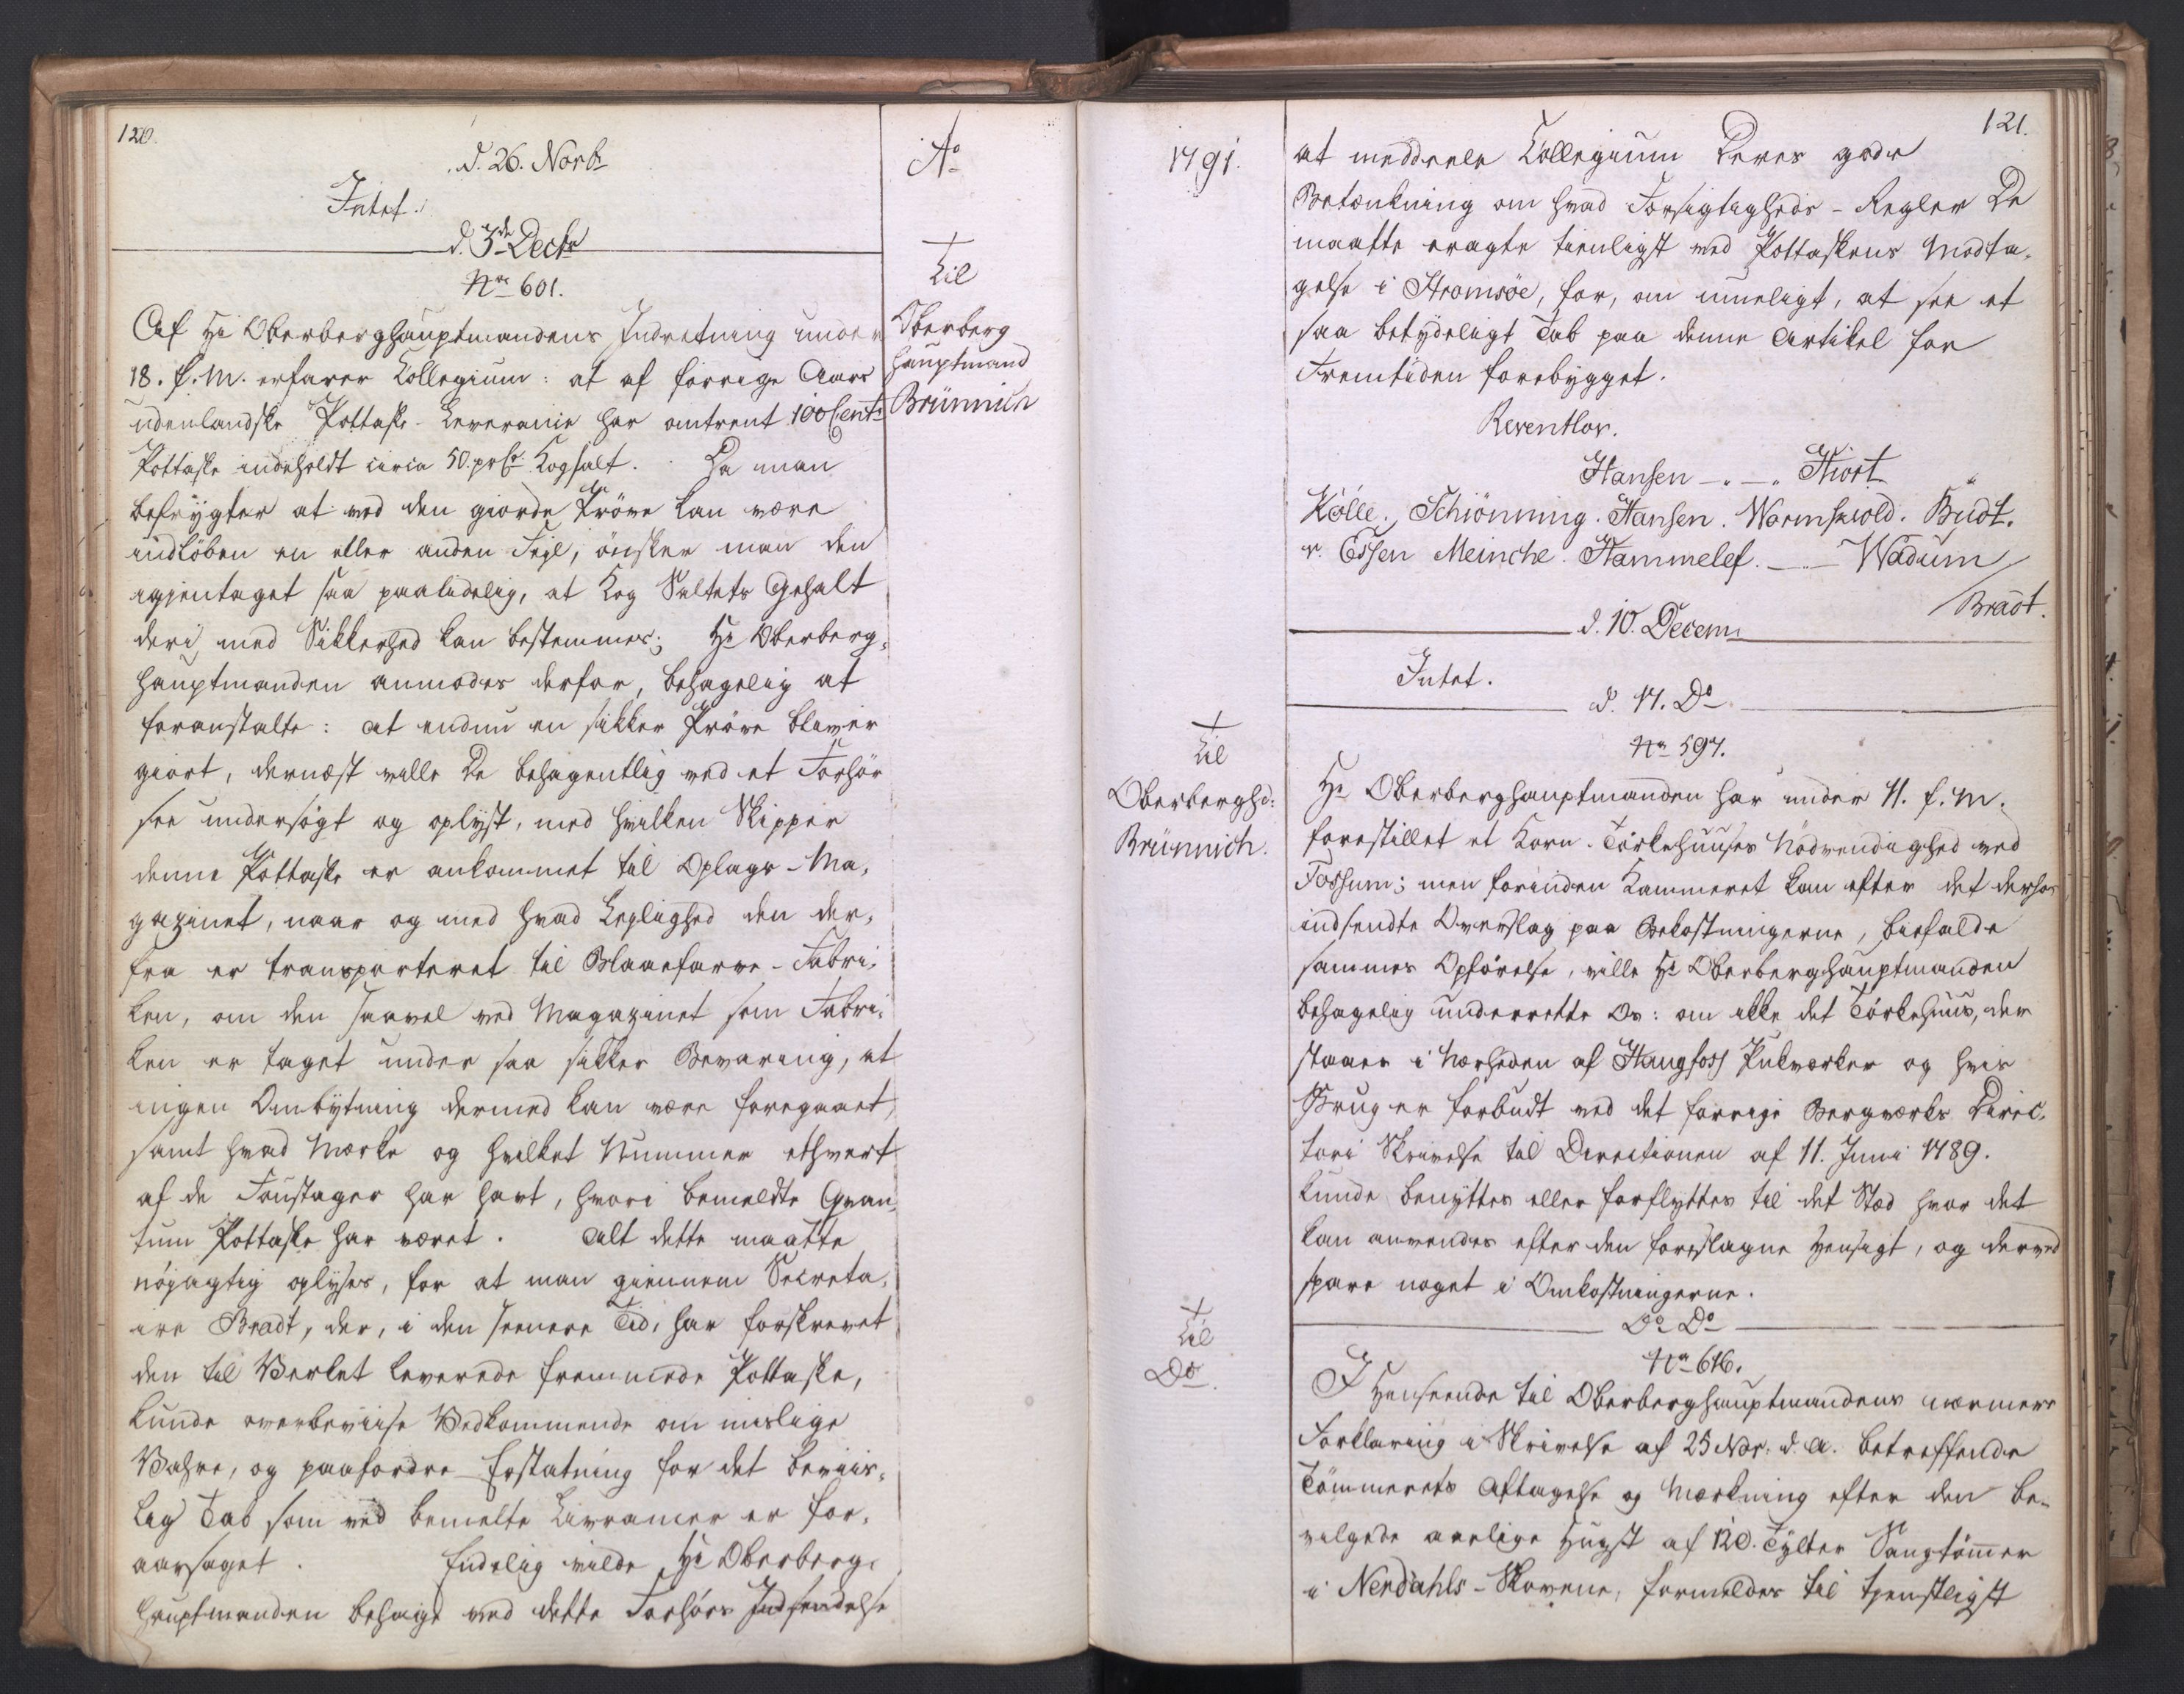 120.
d. 26. Novb.
Intet.
d. 3de Decbr
No 601.
Ao
Til
Oberberg
hauptmand
Brünnich
Af Hr Oberberghauptmandens Indretning under
18. f. M. erfarer Collegium: at af forrige Aars
udenlandske Pottaske-Leverance har omtrent 100 Cent.
Pottaske indeholdt circa 50. prCt Kogsalt. Da man
befrygter at ved den giorde Pröve kan være
indlöben en eller anden Feyl, önsker man den
igjentaget saa paalidelig, at Kog Saltets Gehalt
deri med Sikkerhed kan bestemmes; Hr Oberberg-
hauptmanden anmodes derfor, behagelig at
foranstalte: at endnu en sikker Pröve bliver
giort, dernæst ville De behagentlig ved et Forhör
see undersögt og oplyst, med hvilken Skipper
denne Pottaske er ankommet til Oplags-Ma-
gazinet, naar og med hvad Leylighed den der-
fra er transporteret til Blaaefarve-Fabri-
ken, om den saavel ved Magazinet som Fabri-
ken er taget under saa sikker Bevaring, at
ingen Ombytning dermed kan være foregaaet,
samt hvad Mærke og hvilket Nummer ethvert
af de Foustager har havt, hvori bemeldte Qvan-
tum Pottaske har været. Alt dette maatte
nöjagtig oplyses, for at man giennem Secreta-
ire Bradt, der, i den seenere Tid, har forskrevet
den til Verket leverede fremmede Pottaske,
kunde overbeviise Vedkommende om mislige
Vahre, og paafordre Erstatning for det beviis-
lig Tab som ved bemelte Livrancer er for-
aarsaget. Endelig vilde Hr Oberberg-
hauptmanden behage ved dette Forhörs Indsendelse
1791.
121.
at meddeele Collegium Deres gode
Betænkning om hvad Forsigtigheds-Regler De
maatte eragte tienligst ved Pottaskens Modta-
gelse i Stromsöe, for, om mueligt, at see et
saa betydeligt Tab paa denne Artikel for
Fremtiden forebygget.
Reventlov.
Hansen _._. Hiort
Kölle. Schiönning. Hansen. Wormskiold. Budt.
v. Essen Meinche. Hammelef. _._ Wadum
Bradt.
d. 10. Decem.
Intet.
d. 17. Do
Til
Oberberghd:
Brünnich.
No 597.
Hr Oberberghauptmanden har under 11. f. M.
forestillet et Korn-Törkehuuses Nödvendighed ved
Fossum; men forinden Kammeret kan efter det derhos
indsendte Overslag paa Bekostningerne, biefalde
sammes Opförelse, ville Hr Oberberghauptmanden
behagelig underrette Os: om ikke det Törkehuus, der
staaer i Nærheden af Haugfoss Pukværker og hvis
Brug er forbudt ved det forrige Bergværks Direc-
torii Skrivelse til Directionen af 11. Junii 1789.
kunde benyttes eller forflyttes til det Stæd hvor det
kan anvendes efter den foreslagne Hensigt, og derved
spare noget i Omkostningerne.
Do Do
Til
Do
No 616.
I Henseende til Oberberghauptmandens nærmere
Forklaring i Skrivelse af 25 Nov. d. A. betreffende
Tömmerets Aftagelse og Mærkning efter den be-
vilgede aarlige Hugst af 120. Tylter Saugtömmer
i Nerdahls-Skovene, formeldes til tienstligst